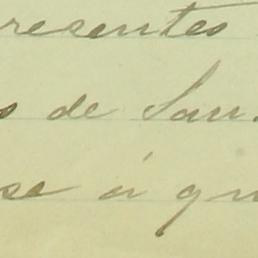 resentes
s de San
se á qu